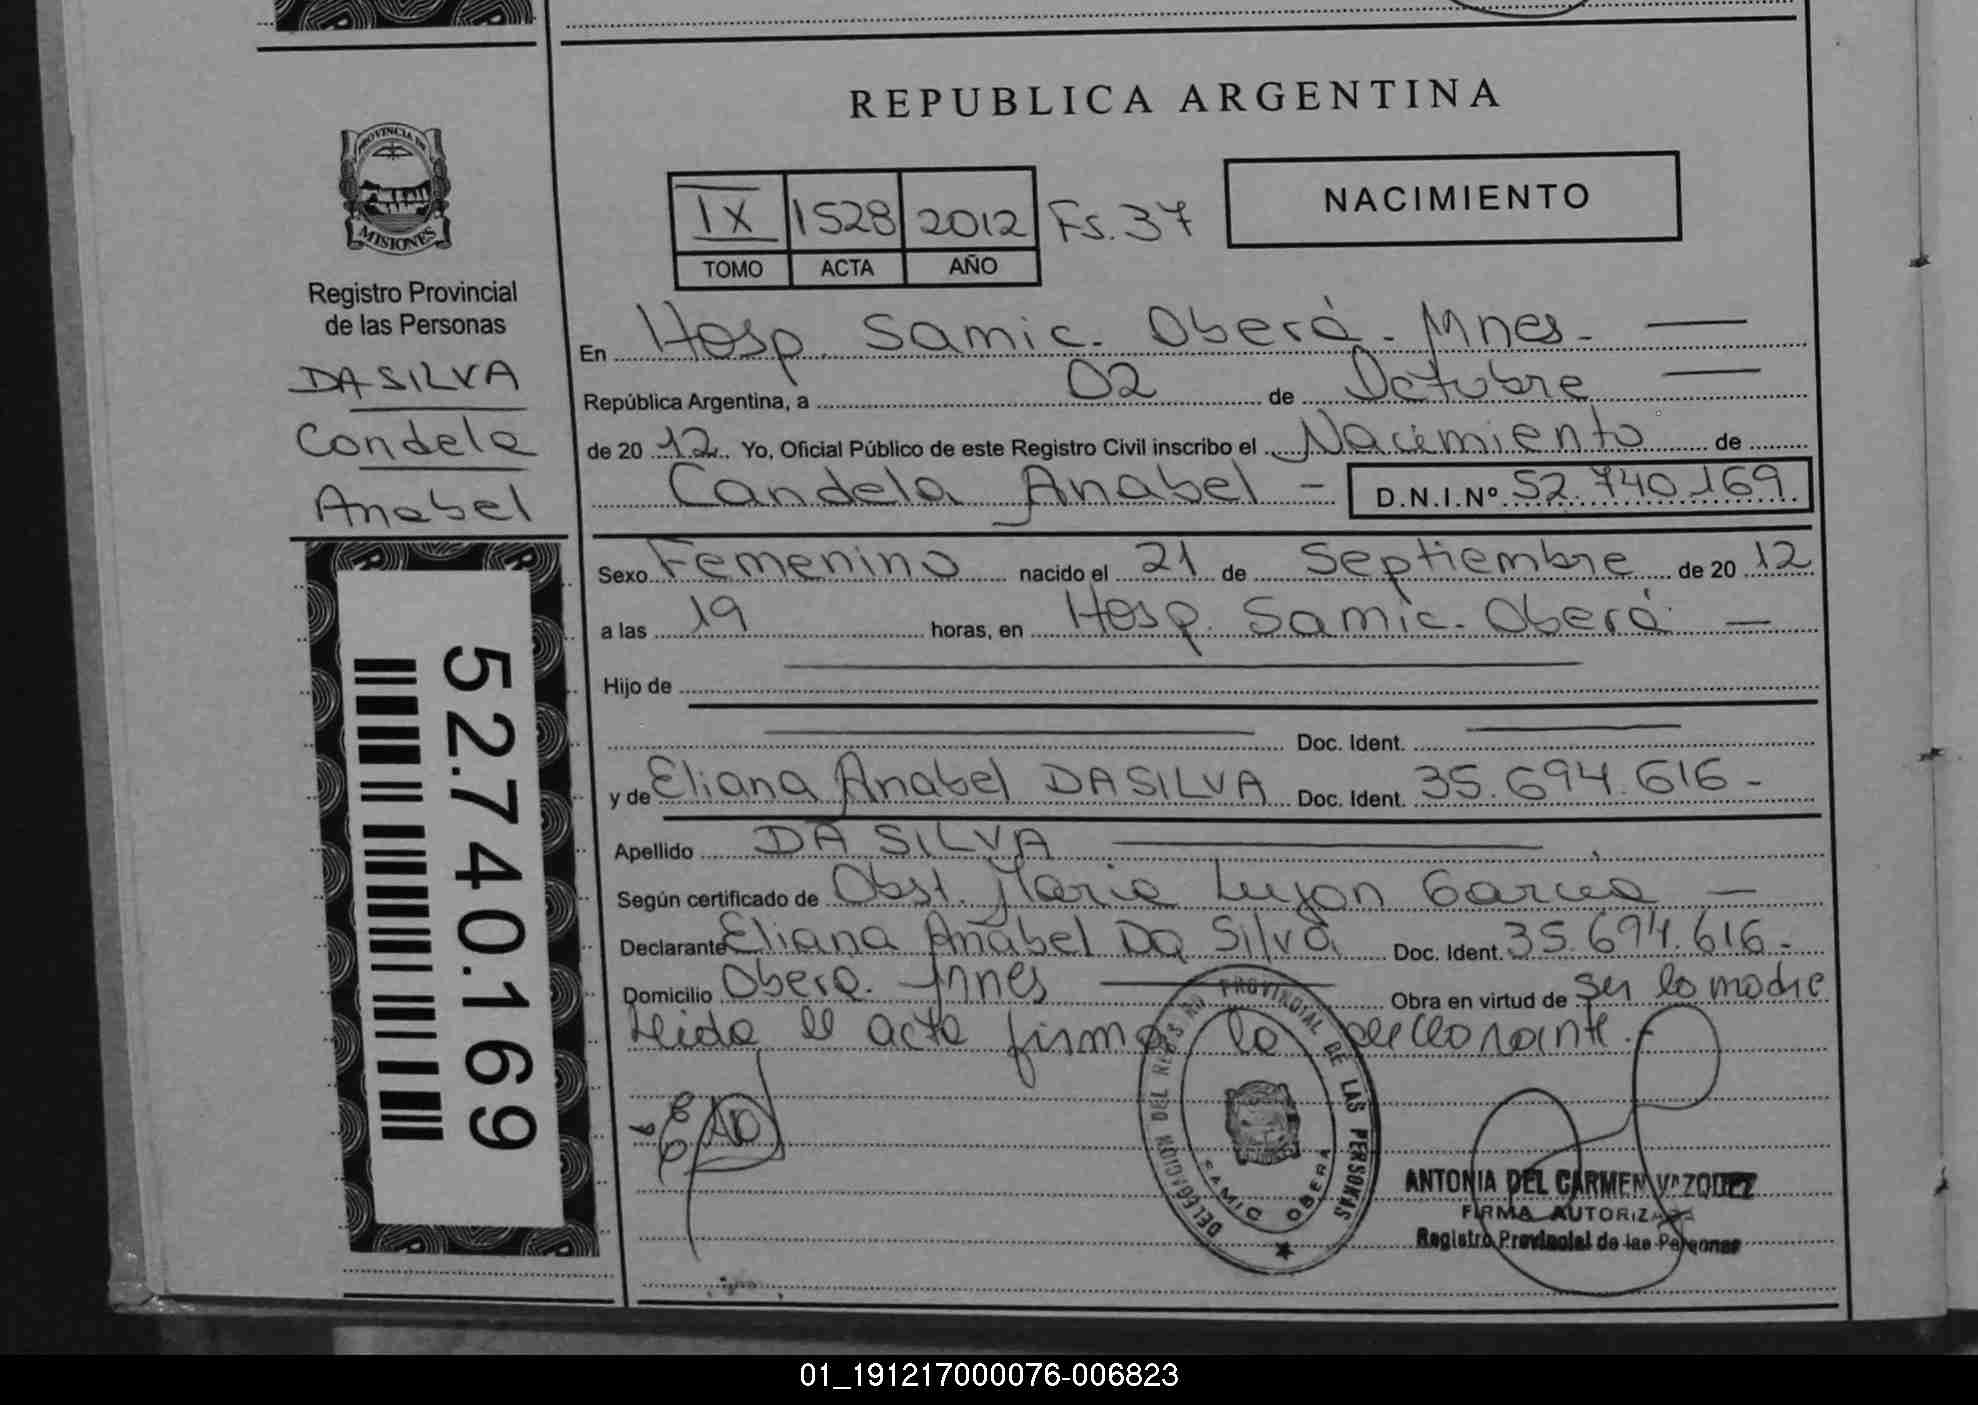 REPUBLICA ARGENTINA
PROVINCIA DE
MISIONES
Registro Provincial
de las Personas
DA SILVA
Candela
Anabel
52.740.169
IX 1528 2012 Fs. 37
TOMO ACTA AÑO
NACIMIENTO
En Hosp. Samic. Oberá. Mnes.
República Argentina, a 02 de Octubre
de 2012. Yo, Oficial Público de este Registro Civil inscribo el Nacimiento de
Candela Anabel - D.N.I.Nº 52.740.169
Sexo Femenino nacido el 21 de Septiembre de 2012
a las 19 horas, en Hosp. Samic. Oberá
Hijo de
Doc. Ident.
y de Eliana Anabel DA SILVA Doc. Ident. 35.694.616-
Apellido DA SILVA
Según certificado de Obst. Maria Lujan Garcia
Declarante Eliana Anabel Da Silva Doc. Ident. 35.694.616-
Domicilio Obera. Mnes Obra en virtud de ser la madre
Leida el acta firma la declarante.-
DELEGACION DEL REGISTRO PROVINCIAL DE LAS PERSONAS
SAMIC OBERA
ANTONIA DEL CARMEN VAZQUEZ
FIRMA AUTORIZADA
Registro Provincial de las Personas
01_191217000076-006823